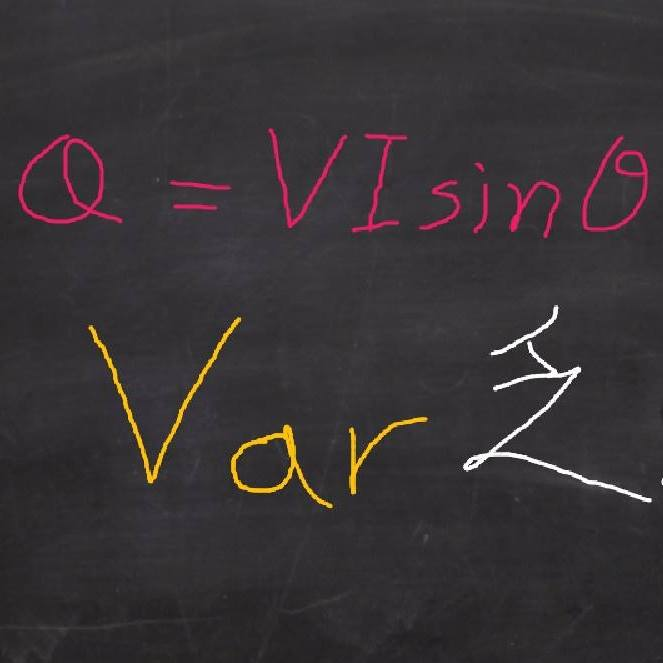 Q = VIsinθ
Var 乏